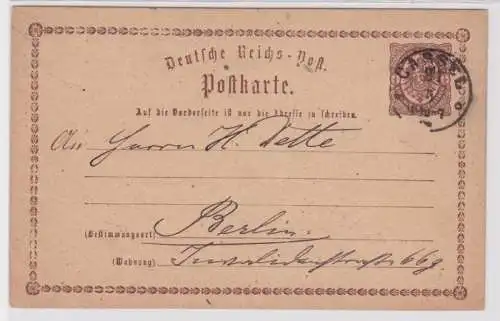 Deutsche Reichs-Post.
Postkarte.
CASSEL
Auf die Vorderseite ist nur die Adresse zu schreiben.
An Herrn H. Dette
(Bestimmungsort) Berlin.
(Wohnung) Invalidenstraße 66g